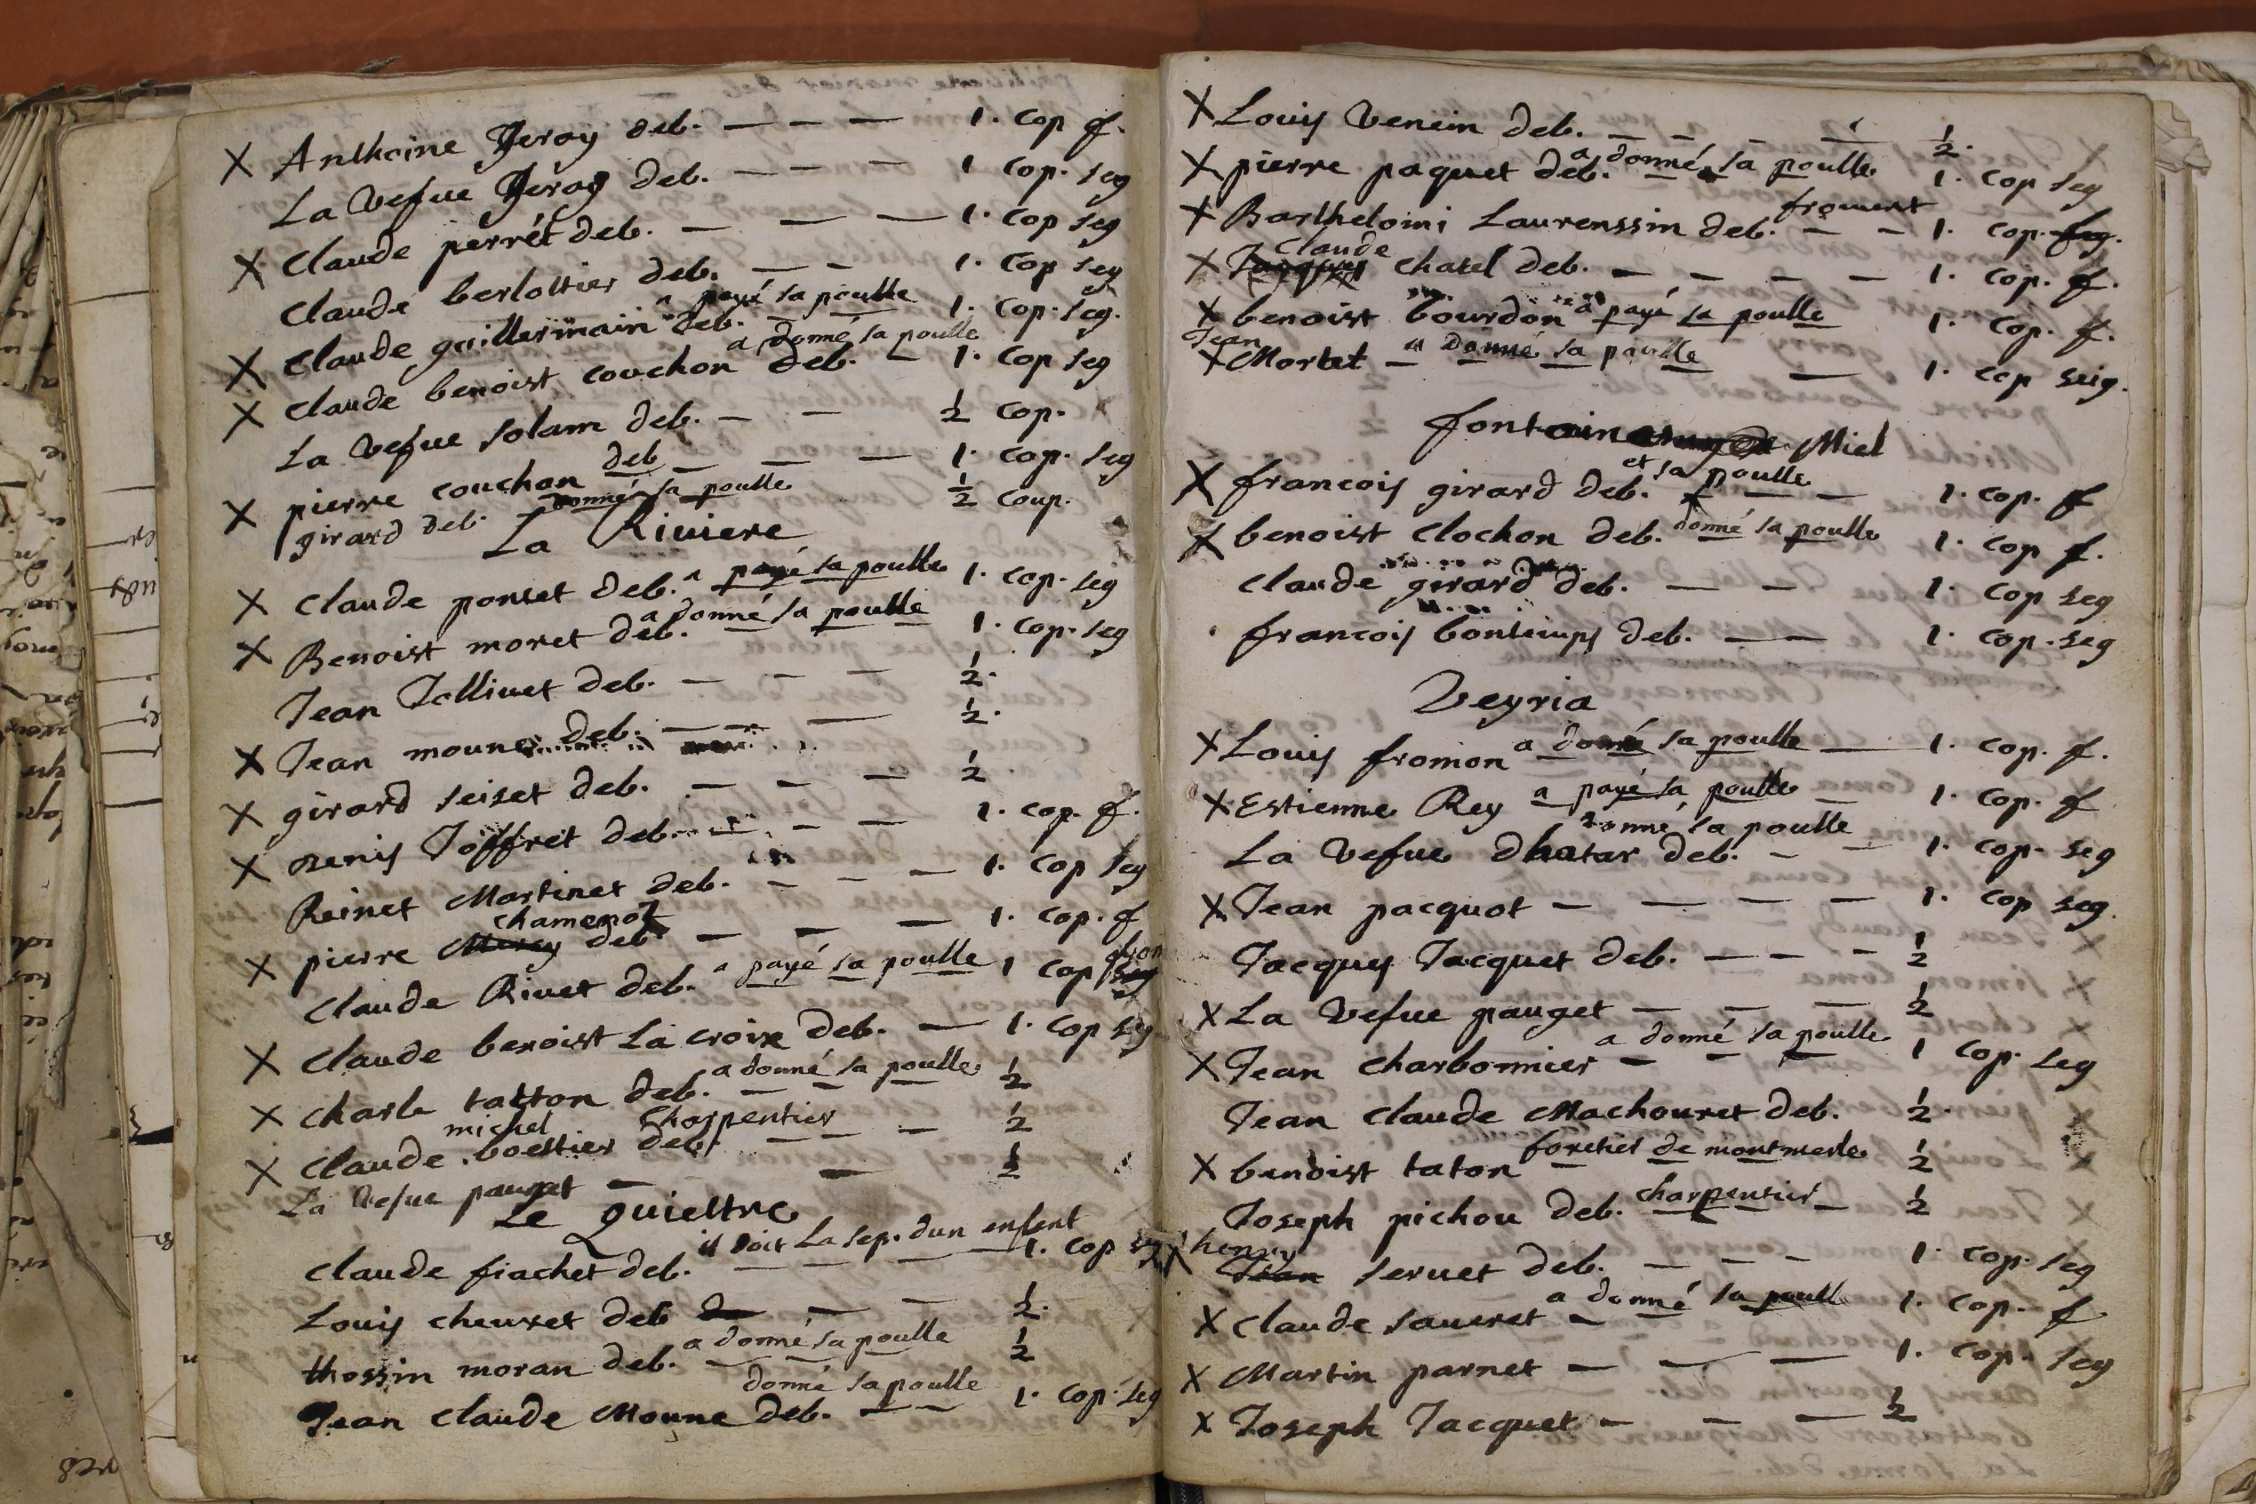 X Anthoine Jeroy deb. — — — 1. cop f.
La vefue Jeroy deb. — — — 1 cop. seg
X Claude perret deb. — — — 1. cop seg
Claude berlottier deb. — — 1. cop seg
X Claude guillermain deb. a payé sa poulle 1. cop. seg.
X Claude benoist couchon deb. a donné sa poulle — 1. cop seg
La vefue solam deb. — — ½ cop.
X pierre couchon deb — — — 1. cop. seg
girard deb. donné sa poulle ½ coup.
La Riuiere
X Claude ponset deb. a payé sa poulle 1. cop. seig
X Benoist moret deb. a donné sa poulle 1. cop. seg
Jean Jollivet deb. — — — ½.
X Jean moune deb. — — — ½.
X girard seiset deb. — — — ½
X Denis Joffret deb. — — — 1. cop. f.
Reinet Martinet deb. — — — 1. cop seg
chamenot
X pierre deb. — — — 1. cop. f
Claude Riuet deb. a payé sa poulle 1 cop from
X Claude benoist La croix deb. — 1. cop seg
X Charle tatton deb. a donné sa poulle ½
michel charpentier
X Claude boettier deb. — — — ½
La vefue pauget — — ½
Le quiettre
Claude fiachet deb. il doit La sep. dun enfent 1. cop seg
Louis cheuret deb — — — ½.
thossin moran deb. a donné sa poulle ½
Jean Claude Moune deb. donné sa poulle — — 1. cop. seg
X Louis Venein deb. — — — — ½.
X pierre paquet deb. a donné sa poulle 1. cop seg
X Barthelomi Laurenssin deb. froment — — 1. cop. seg.
Claude
X Jacques chatel deb. — — — — 1. cop. f.
X benoist bourdon a payé sa poulle 1. cop. f.
Jean
X Mortet — a donné sa poulle — 1. cop seig.
fontain Miel
X francois girard deb. et sa poulle — — 1. cop. f
X benoist Clochon deb. donné sa poulle 1. cop f.
Claude girard deb. — — 1. cop seg
francois bontemps deb. — — 1. cop. seg
Veyria
X Louis fromon a donné sa poulle — 1. cop. f.
X Estienne Rey a payé sa poulle — 1. cop. f
La vefue dhatar deb. donné sa poulle — — 1. cop. seg
X Jean pacquot — — — — 1. cop seg.
Jacques Jacquet deb. — — — ½
X La vefue pauget — — — ½
X Jean charbonnier a donné sa poulle — — — 1 cop. seg
Jean Claude Machouret deb. ½.
X benoist taton foretier de montmerle ½
Joseph pichou deb. charpentier — ½
henry
X Jean seruet deb. — — — 1. cop. seg
X Claude saueret a donné sa poull 1. cop. f
X Martin parnet — — — 1. cop. seg
X Joseph Jacquet — — — ½